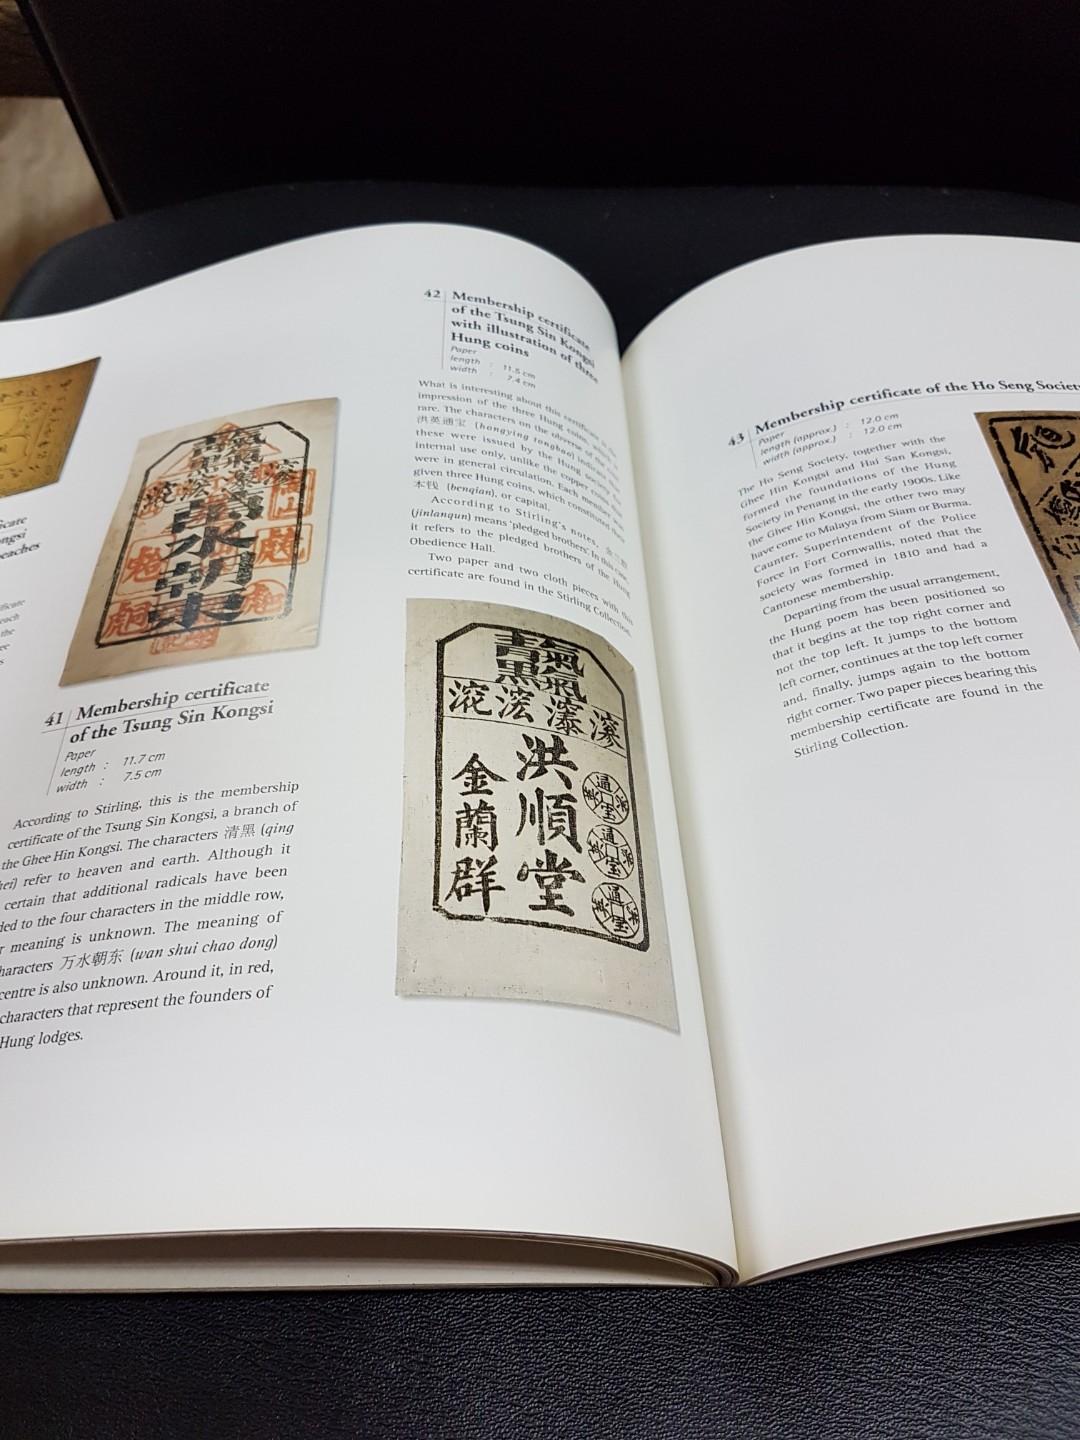 41 Membership certificate
of the Tsung Sin Kongsi
Paper
length : 11.7 cm
width : 7.5 cm
According to Stirling, this is the membership
certificate of the Tsung Sin Kongsi, a branch of
the Ghee Hin Kongsi. The characters 清黑 (qing
hei) refer to heaven and earth. Although it
certain that additional radicals have been
ded to the four characters in the middle row,
meaning is unknown. The meaning of
haracters 万水朝东 (wan shui chao dong)
centre is also unknown. Around it, in red,
characters that represent the founders of
Hung lodges.
42 Membership certificate
of the Tsung Sin Kongsi
with illustration of three
Hung coins
Paper
length : 11.5 cm
width : 7.4 cm
What is interesting about this certificate is
impression of the three Hung coins,
rare. The characters on the obverse of the
洪英通宝 (hongying tongbao) indicate that
these were issued by the Hung society for
internal use only, unlike the copper coins that
were in general circulation. Each member was
given three Hung coins, which constituted their
本钱 (benqian), or capital.
According to Stirling's notes,
(jinlanqun) means 'pledged brothers'. In this case,
it refers to the pledged brothers of the Hung
Obedience Hall.
Two paper and two cloth pieces with this
certificate are found in the Stirling Collection.
洪順堂
金蘭群
通宝
通宝
通宝
43 Membership certificate of the Ho Seng Society
Paper
length (approx.) : 12.0 cm
width (approx.) : 12.0 cm
The Ho Seng Society, together with the
Ghee Hin Kongsi and Hai San Kongsi,
formed the foundations of the Hung
Society in Penang in the early 1900s. Like
the Ghee Hin Kongsi, the other two may
have come to Malaya from Siam or Burma.
Caunter, Superintendent of the Police
Force in Fort Cornwallis, noted that the
society was formed in 1810 and had a
Cantonese membership.
Departing from the usual arrangement,
the Hung poem has been positioned so
that it begins at the top right corner and
not the top left. It jumps to the bottom
left corner, continues at the top left corner
and, finally, jumps again to the bottom
right corner. Two paper pieces bearing this
membership certificate are found in the
Stirling Collection.